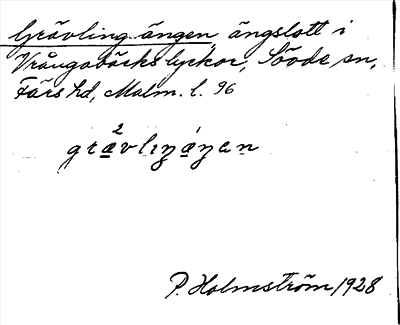 Grävling-ängen, ängslott i
Vrångabäckslyckor, Sövde sn,
Färs hd, Malm. l. 96
P. Holmström 1928